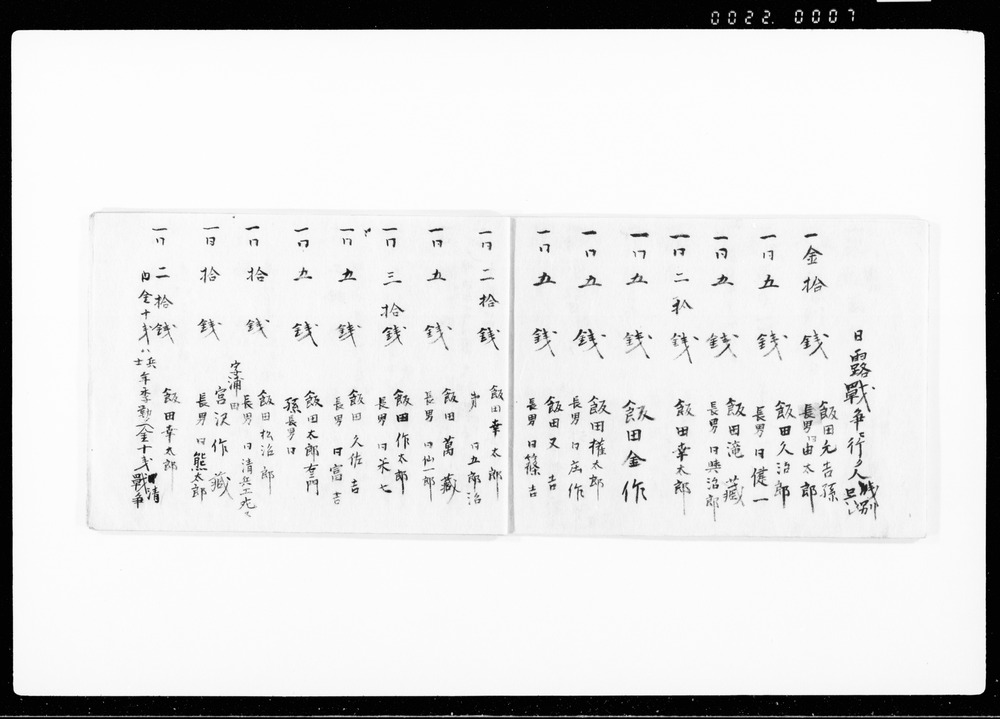 0022. 0007
日露戰争行ク人
餞別
一金拾銭
飯田元吉孫
長男日由太郎
一口五銭
飯田久治郎
長男日健一
一口五銭
飯田滝藏
長男日與治郎
一口二拾銭
飯田幸太郎
一口五銭
飯田金作
一口五銭
飯田權太郎
長男日庄作
一口五銭
飯田又吉
長男日篠吉
一口二拾銭
飯田幸太郎
弟日五郎治
一口五銭
飯田萬藏
長男日仙一郎
一口三拾銭
飯田作太郎
長男日米七
一口五銭
飯田久佐吉
長男日富吉
一口五銭
飯田太郎右門
孫長男日
一口拾銭
飯田松治郎
長男日清兵工
一日拾銭
字浦田
宮沢作藏
長男日熊太郎
一口二拾銭
飯田幸太郎
内金十戋ハ兵士
金十戋日清
戰争